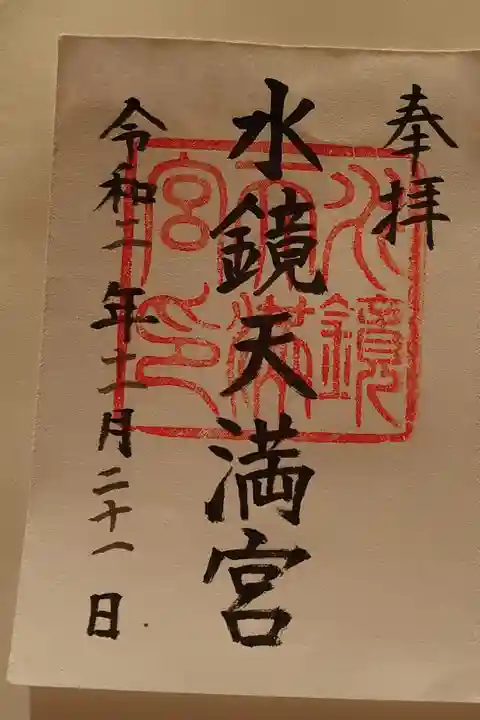 奉拝
水鏡天満宮
令和二年十一月二十一日
水鏡
天満
宮印